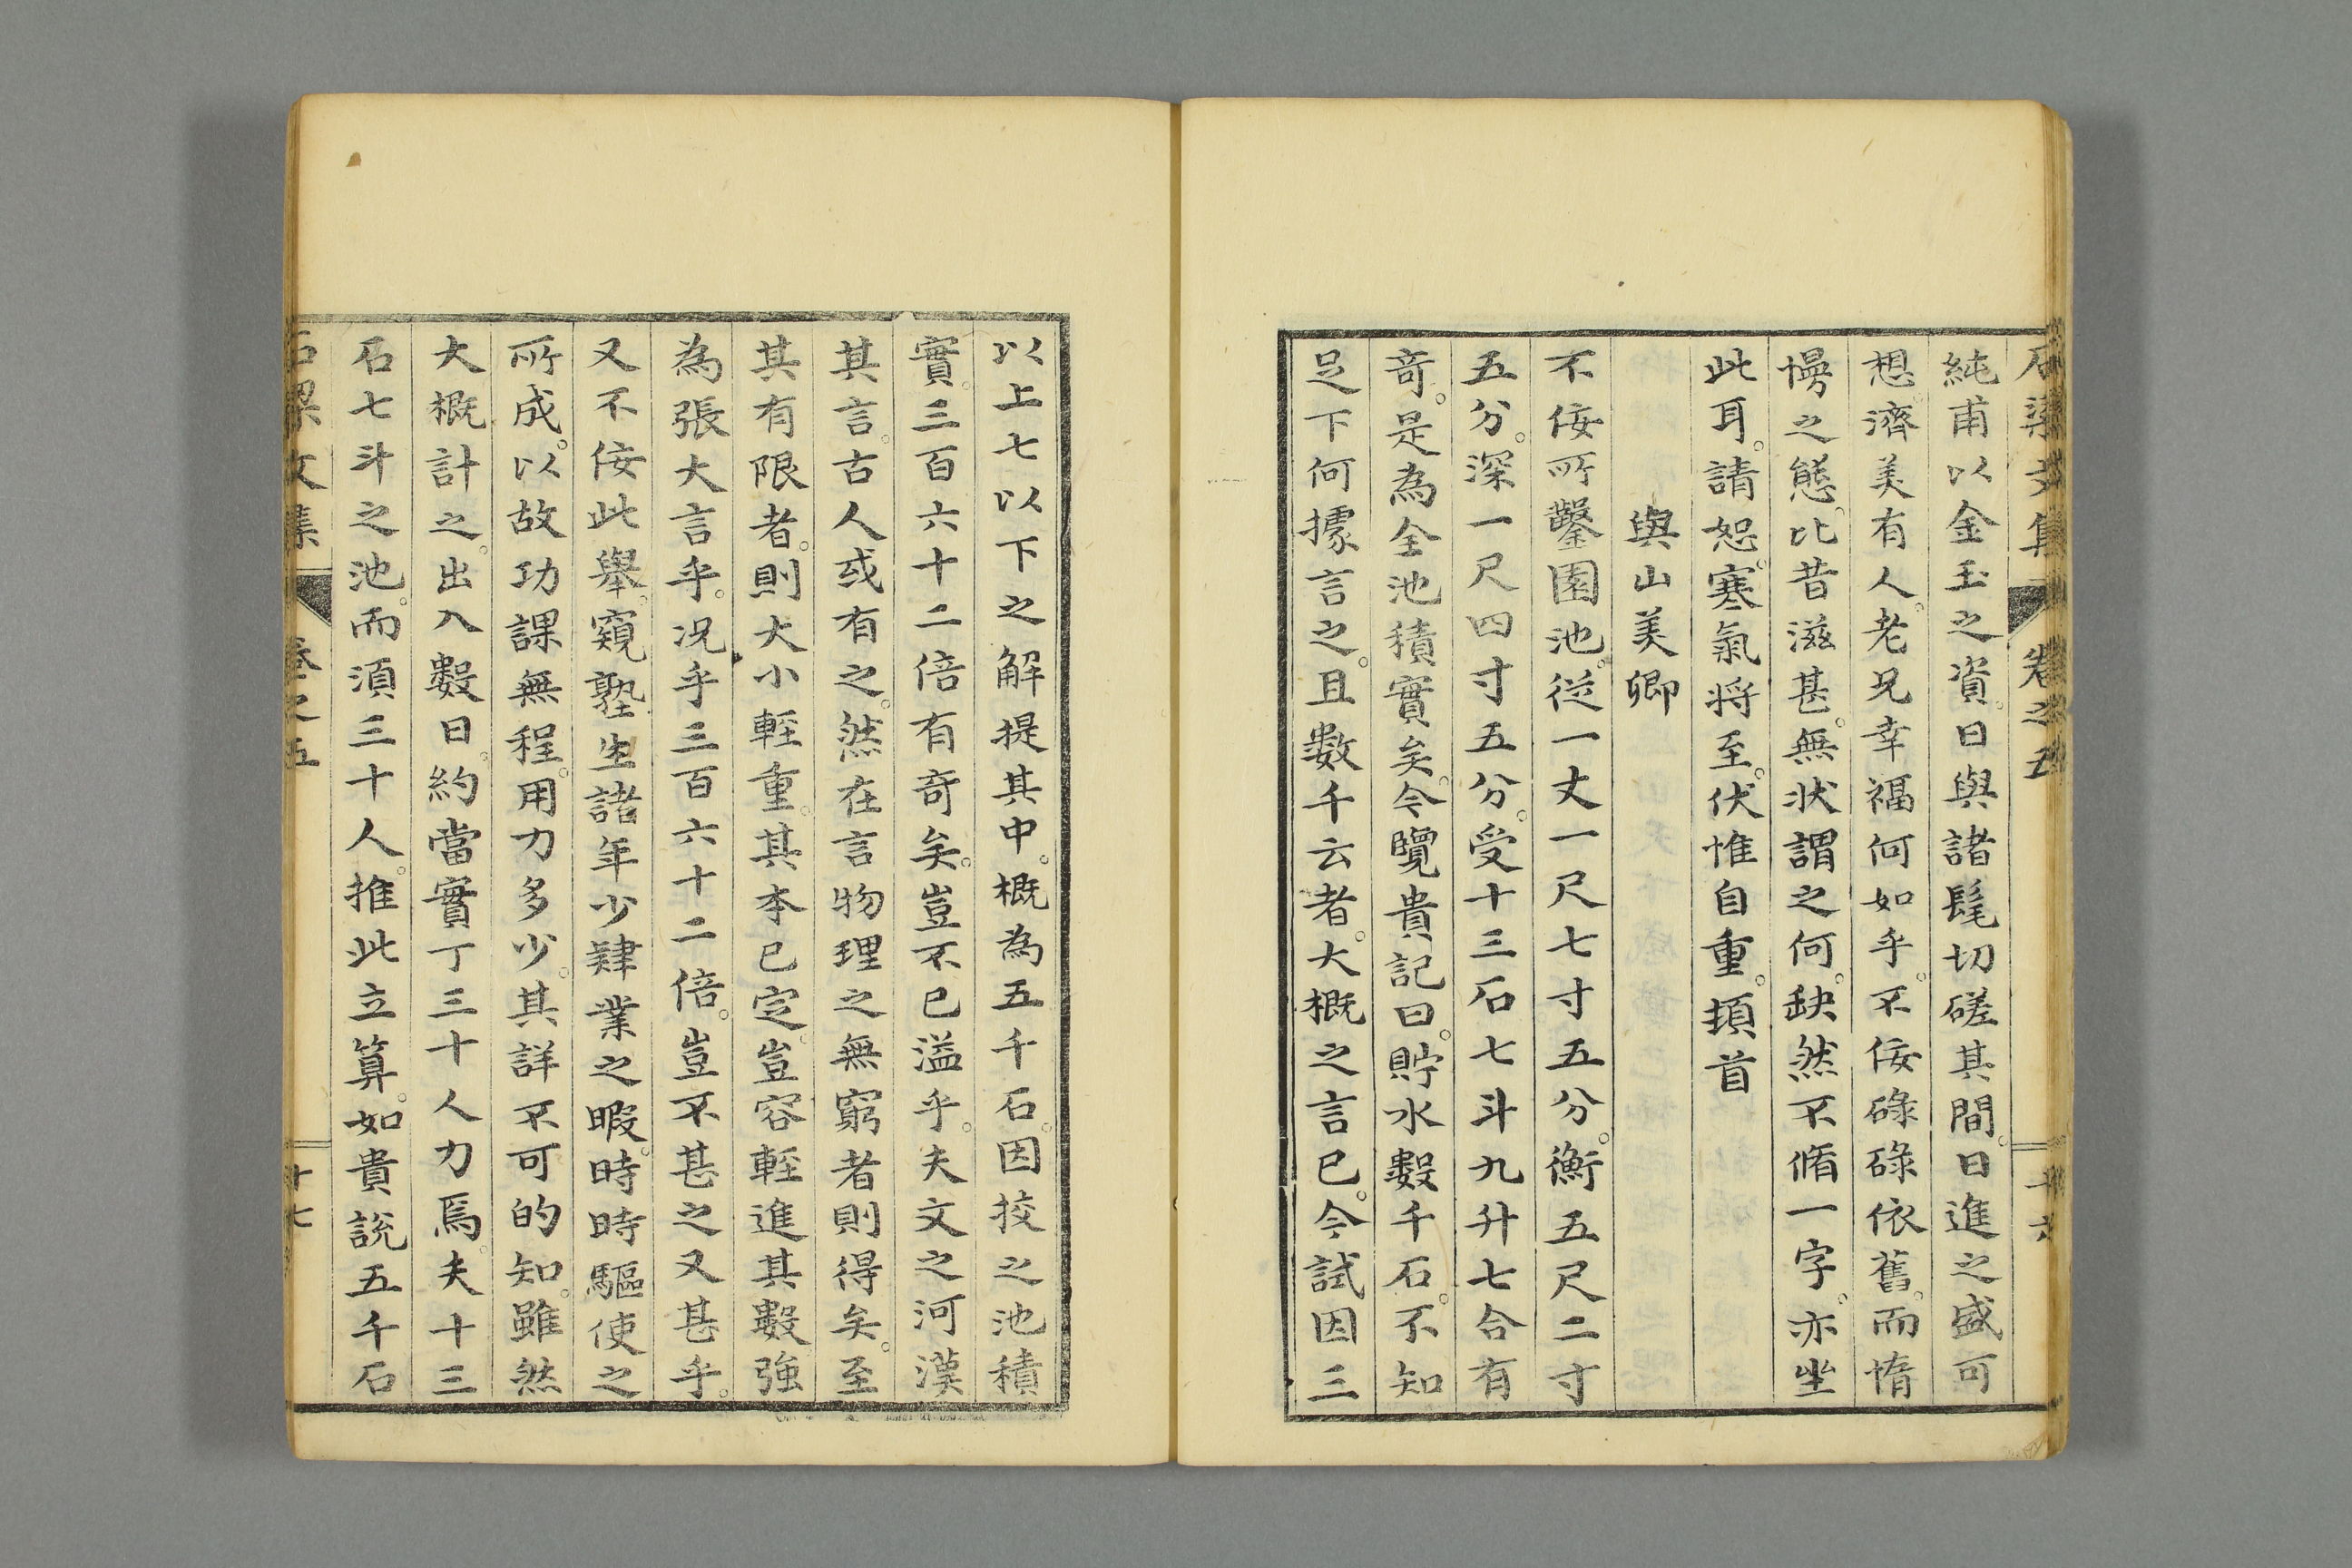 石梁文集 卷之五 十六
純甫以金玉之資。日與諸髦切磋其間。日進之盛可
想。濟美有人。老兄幸福何如乎。不佞碌碌依舊。而惰
慢之態。比昔滋甚。無状謂之何。缺然不脩一字。亦坐
此耳。請恕。寒氣将至。伏惟自重。頓首
與山美卿
不佞所鑿園池。從一丈一尺七寸五分。衡五尺二寸
五分。深一尺四寸五分。受十三石七斗九升七合有
奇。是為全池積實矣。今覽貴記曰。貯水數千石。不知
足下何據言之。且数千云者。大概之言已。今試因三
以上七以下之解提其中。概為五千石。因挍之池積
實。三百六十二倍有奇矣。豈不已溢乎。夫文之河漢
其言。古人或有之。然在言物理之無窮者則得矣。至
其有限者。則大小輕重。其本已定。豈容輕進其數強
為張大言乎。况乎三百六十二倍。豈不甚之又甚乎。
又不佞此舉。窺塾生諸年少肄業之暇。時時驅使之
所成。以故功課無程。用力多少。其詳不可的知。雖然
大概計之。出入數日。約當實丁三十人力焉。夫十三
石七斗之池。而須三十人。推此立算。如貴說五千石
石梁文集 卷之五 十七